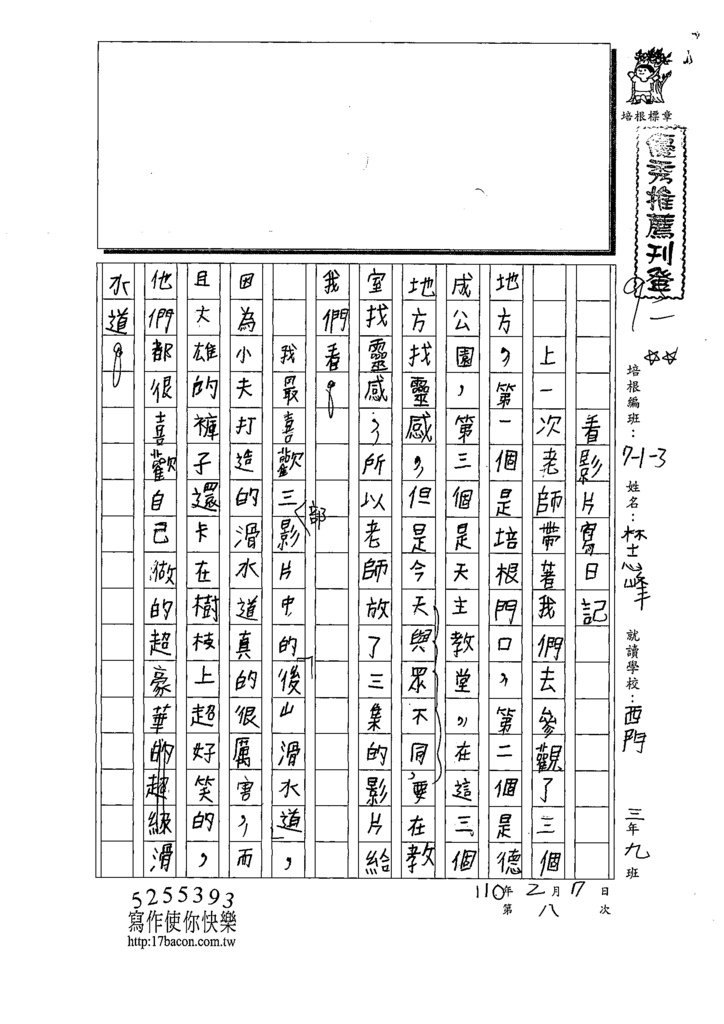 培根標章
優秀推薦刊登
九一
培根編班：7-1-3 姓名：林志峰 就讀學校：西門 三年九班
看影片寫日記
上一次老師帶著我們去參觀了三個
地方，第一個是培根門口，第二個是德
成公園，第三個是天主教堂，在這三個
地方找靈感，但是今天與眾不同，要在教
室找靈感，所以老師放了三集的影片給
我們看。
我最喜歡三部影片中的「後山滑水道」，
因為小夫打造的滑水道真的很厲害，而
且大雄的褲子還卡在樹枝上超好笑的，
他們都很喜歡自己做的超豪華的超級滑
水道。
110年2月17日
第八次
5255393
寫作使你快樂
http:17bacon.com.tw